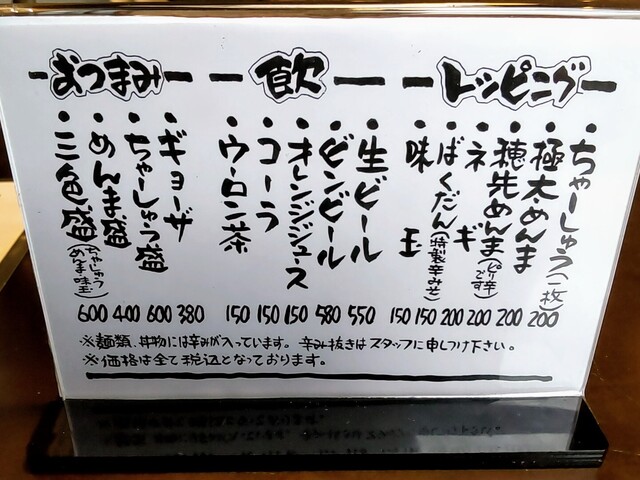 トッピング
・ちゃーしゅう(一枚) 200
・極太めんま 200
・穂先めんま(ピリ辛です) 200
・ネギ 200
・ばくだん(特製辛みそ) 150
・味玉 150
飲
・生ビール 550
・ビンビール 580
・オレンジジュース 150
・コーラ 150
・ウーロン茶 150
おつまみ
・ギョーザ 380
・ちゃーしゅう盛 600
・めんま盛 400
・三色盛(ちゃしゅうめんま・味玉) 600
※麺類、丼物には辛みが入っています。辛み抜きはスタッフに申しつけ下さい。
※価格は全て税込となっております。